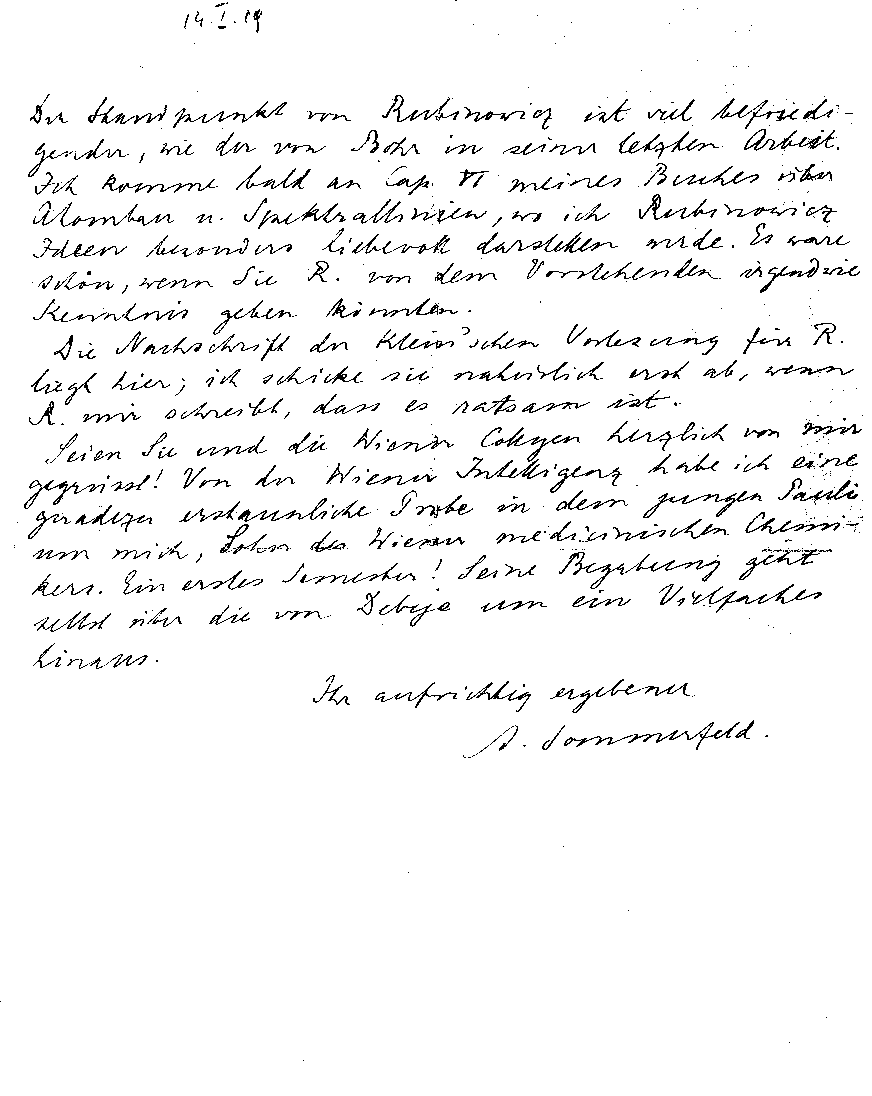 14.I.19
Der Standpunkt von Rubinowicz ist viel befriedi-
gender, wie der von Bohr in seiner letzten Arbeit.
Ich komme bald an Cap. VI meines Buches über
Atombau u. Spektrallinien, wo ich Rubinowicz
Ideen besonders liebevoll darstellen werde. Es wäre
schön, wenn Sie R. von dem Vorstehenden irgendwie
Kenntnis geben könnten.
Die Nachschrift der Klein'schen Vorlesung für R.
liegt hier; ich schicke sie natürlich erst ab, wenn
R. mir schreibt, dass es ratsam ist.
Seien Sie und die Wiener Collegen herzlich von mir
gegrüsst! Von der Wiener Intelligenz habe ich eine
geradezu erstaunliche Probe in dem jungen Pauli
um mich, Sohn des Wiener medicinischen Chemi-
kers. Ein erstes Semester! Seine Begabung geht
selbst über die von Debije um ein Vielfaches
hinaus.
Ihr aufrichtig ergebener
A. Sommerfeld.